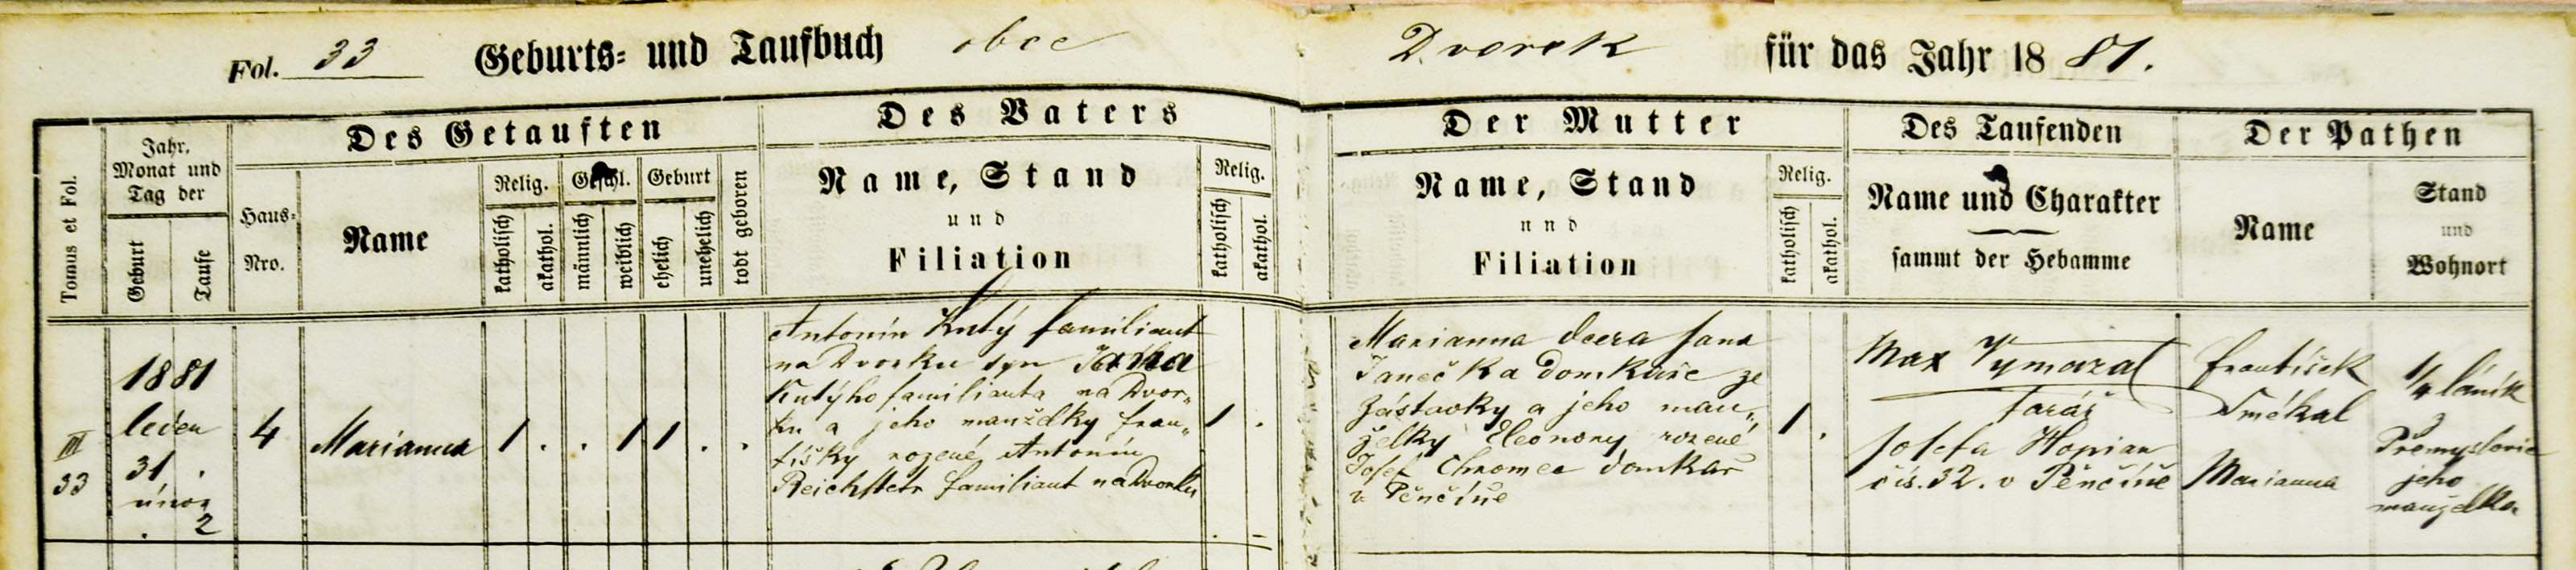 Fol. 33 Geburts- und Taufbuch obce Dvorek für das Jahr 1881.
Des Getauften
Des Vaters
Der Mutter
Des Taufenden
Der Pathen
Tomus et Fol.
Jahr,
Monat und
Tag der
Geburt
Taufe
Haus-
Nro.
Name
Relig.
katholisch
akathol.
Geschl.
männlich
weiblich
Geburt
ehelich
unehelich
todt geboren
Name, Stand
und
Filiation
Relig.
katholisch
akathol.
Name, Stand
und
Filiation
Relig.
katholisch
akathol.
Name und Charakter
sammt der Hebamme
Name
Stand
und
Wohnort
III
33
1881
leden
31.
únor
. 2
4
Marianna
1 . . 1 1 . .
Antonín Kutý familiant
na Dvorku syn
Kutýho familianta na Dvor„
ku a jeho manželky Fran„
tišky rozené Antonín
familiant na Dvorku
1 .
Marianna dcera Jana
Janečka domkaře ze
Zástavky a jeho man„
želky Eleonory rozené
Josef Chromec domkař
v Pěnčíně
1 .
Max Vymazal
Farář
Josefa
čís. 32. v Pěnčíně
František
Smékal
Marianna
1/4 láník
Přemyslovic
jeho
manželka